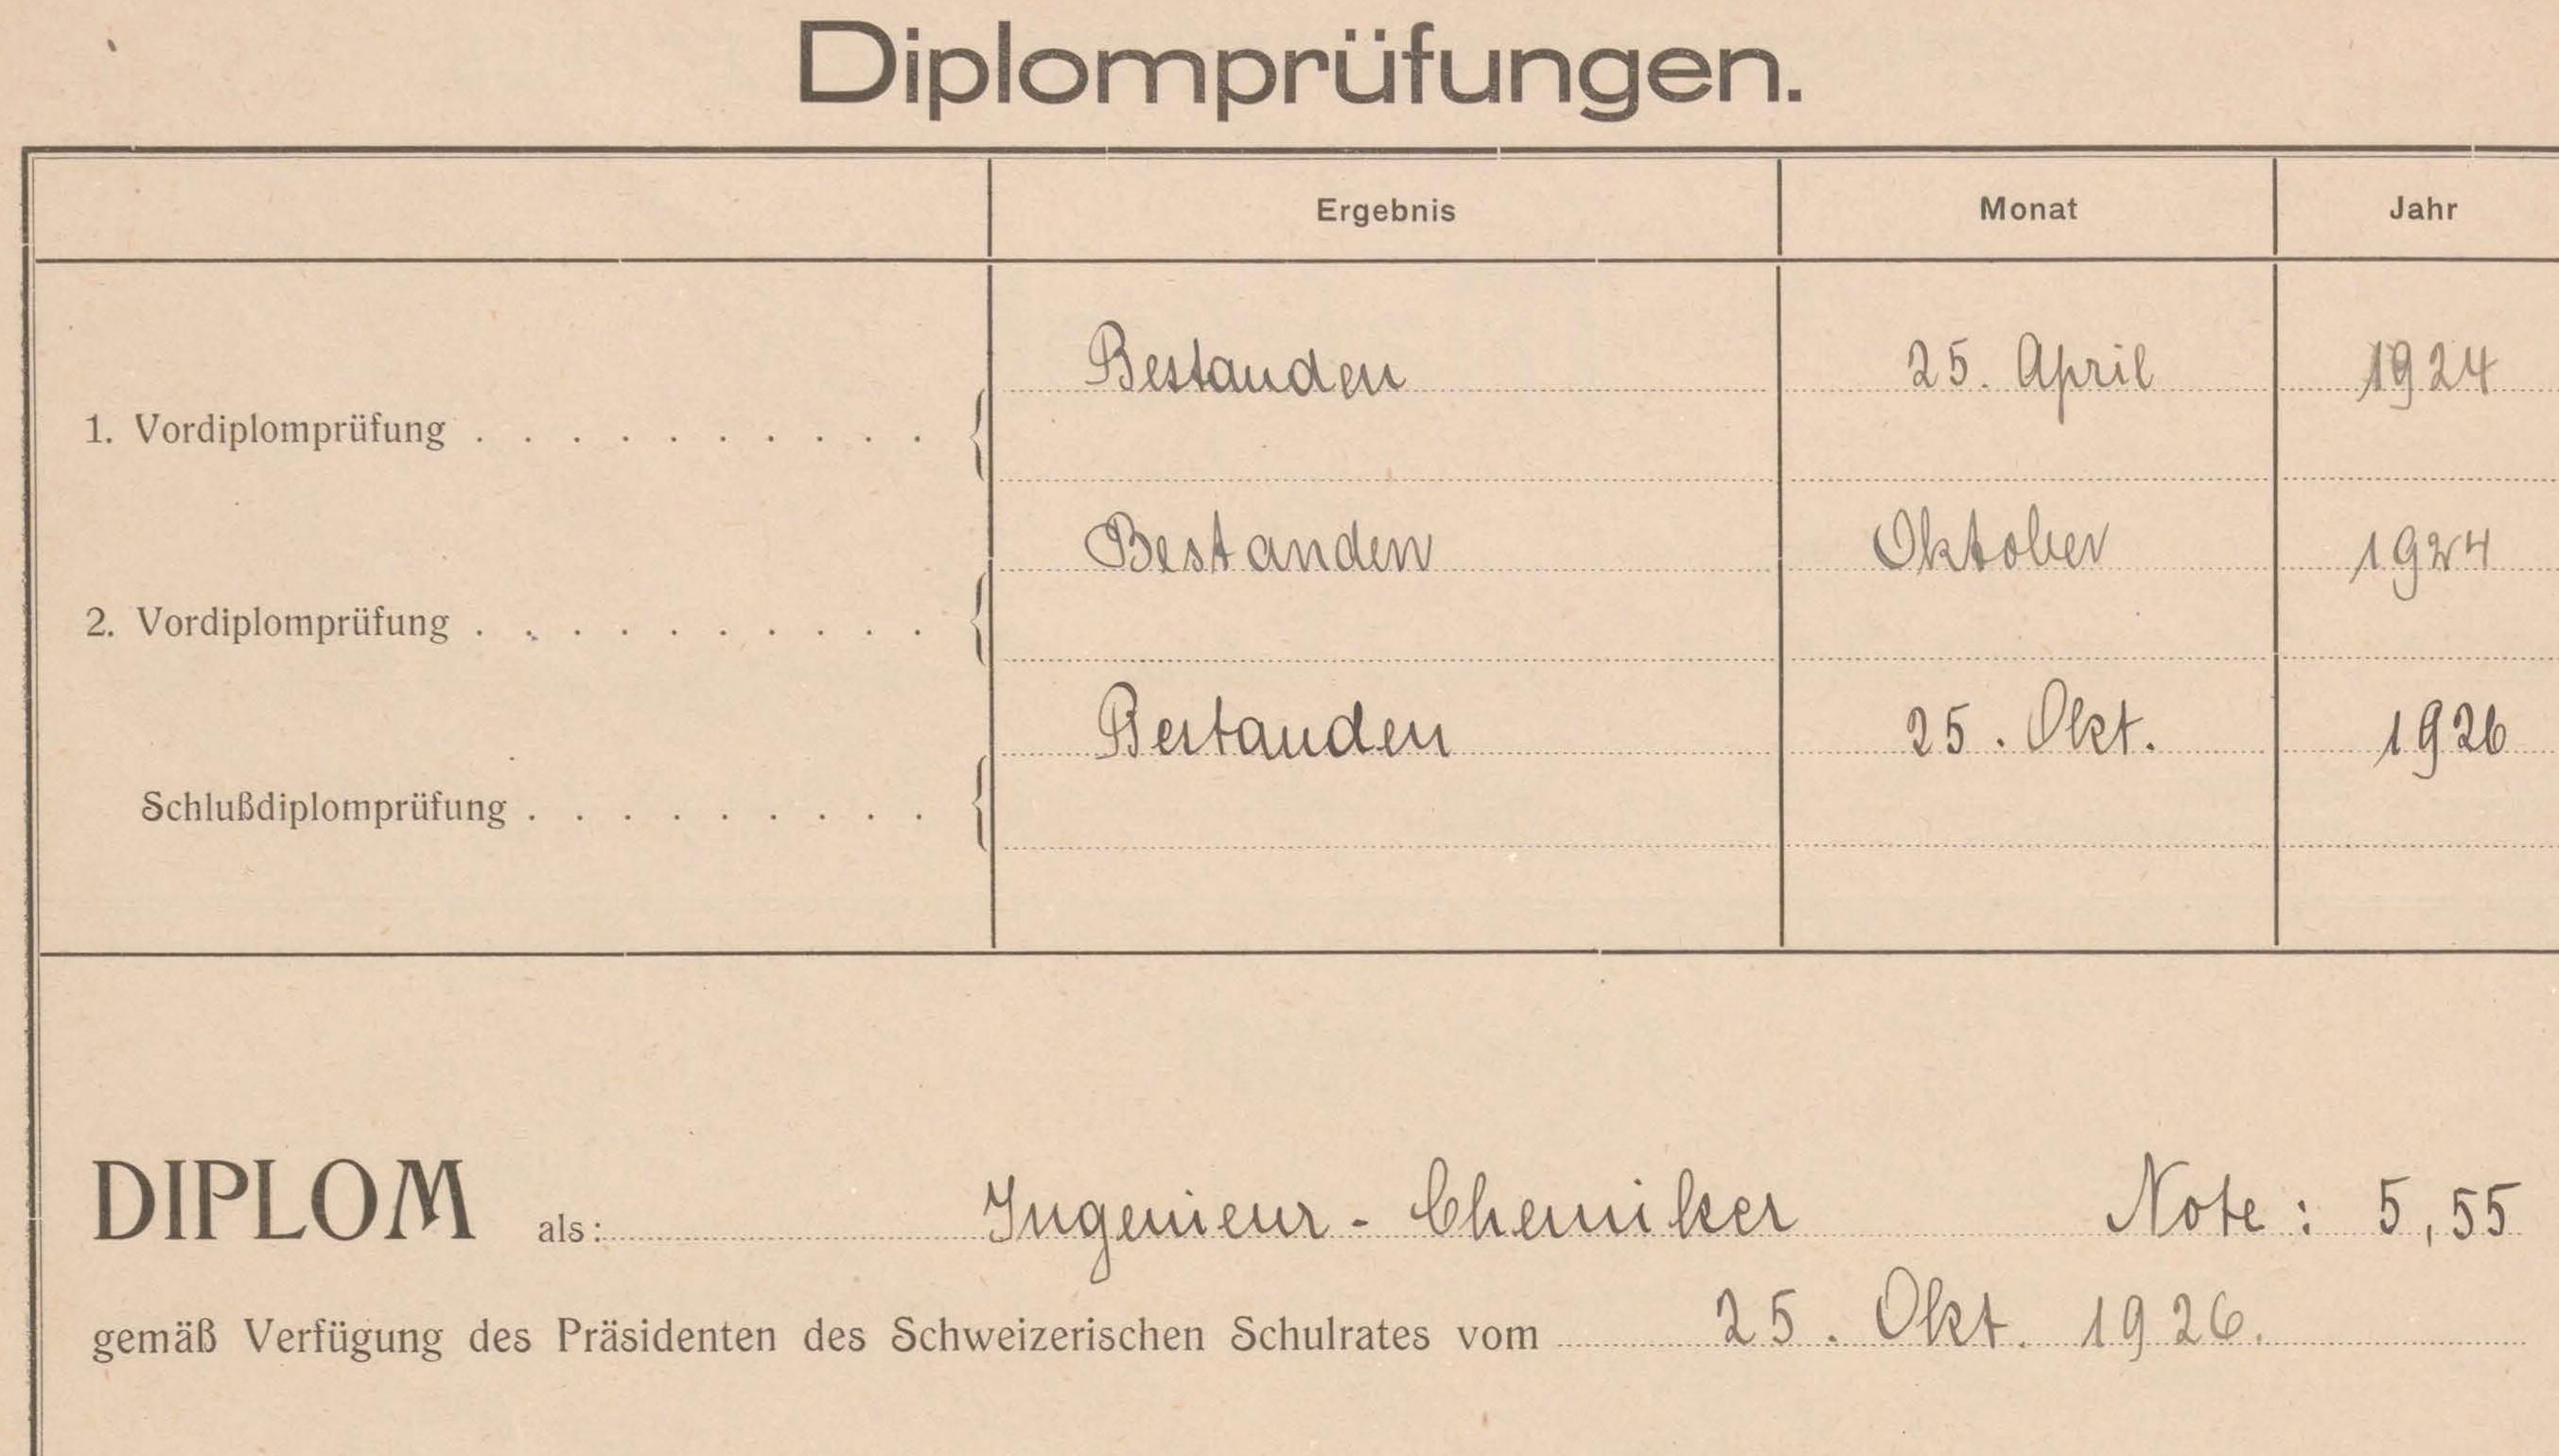 Diplomprüfungen.
Ergebnis Monat Jahr
Bestanden 25. April 1924
1. Vordiplomprüfung . . . . . . . . . .
Bestanden Oktober 1924
2. Vordiplomprüfung . . . . . . . . . .
Bestanden 25. Okt. 1926
Schlußdiplomprüfung . . . . . . . . .
DIPLOM als: Ingenieur - Chemiker Note: 5,55
gemäß Verfügung des Präsidenten des Schweizerischen Schulrates vom 25. Okt. 1926.